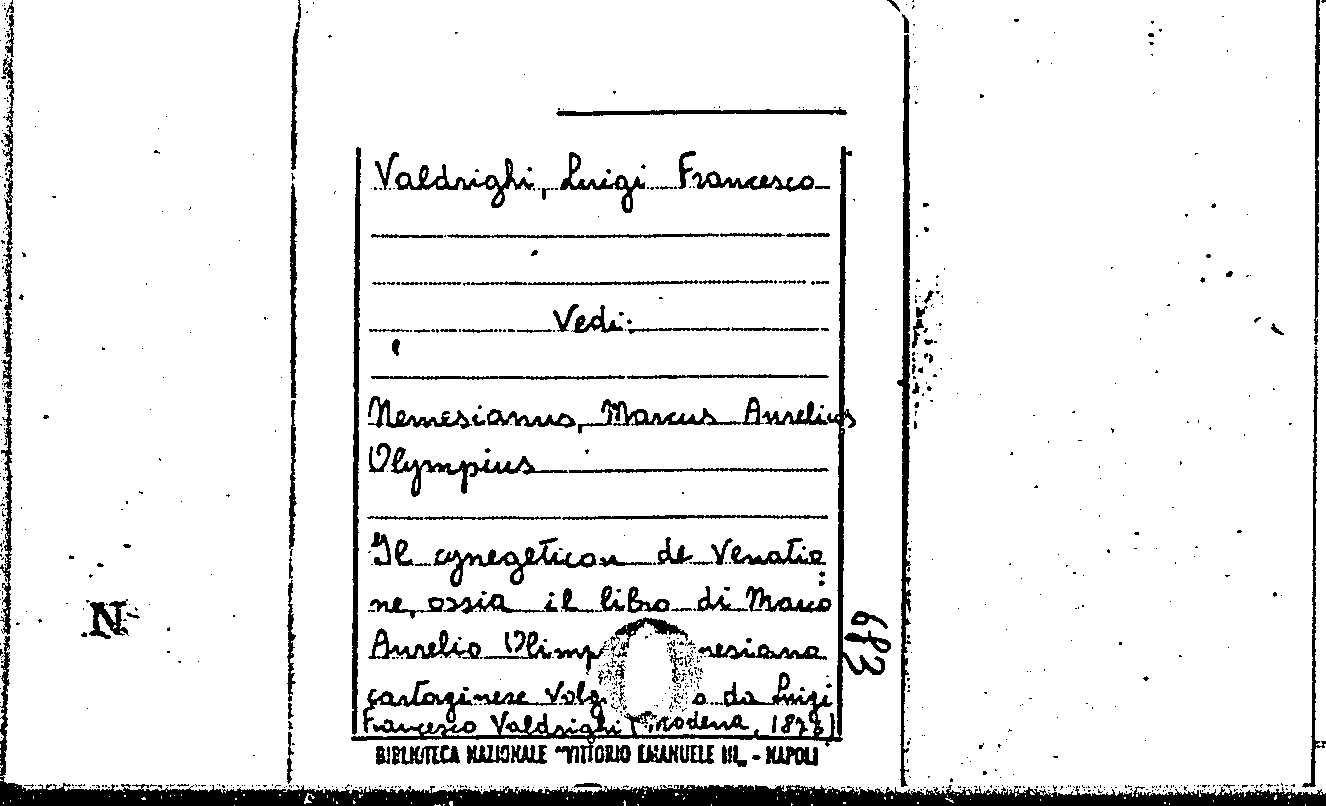 Valdrighi, Luigi Francesco
Vedi:
Nemesianus, Marcus Aurelius
Olympius
Il cynegeticon de Venatio
ne, ossia il libro di Marco
Aurelio Olimp nesiano
cartaginese Volg o da Luigi
Francesco Valdrighi (Modena, 1876)
BIBLIOTECA NAZIONALE "VITTORIO EMANUELE III„ - NAPOLI
N
683